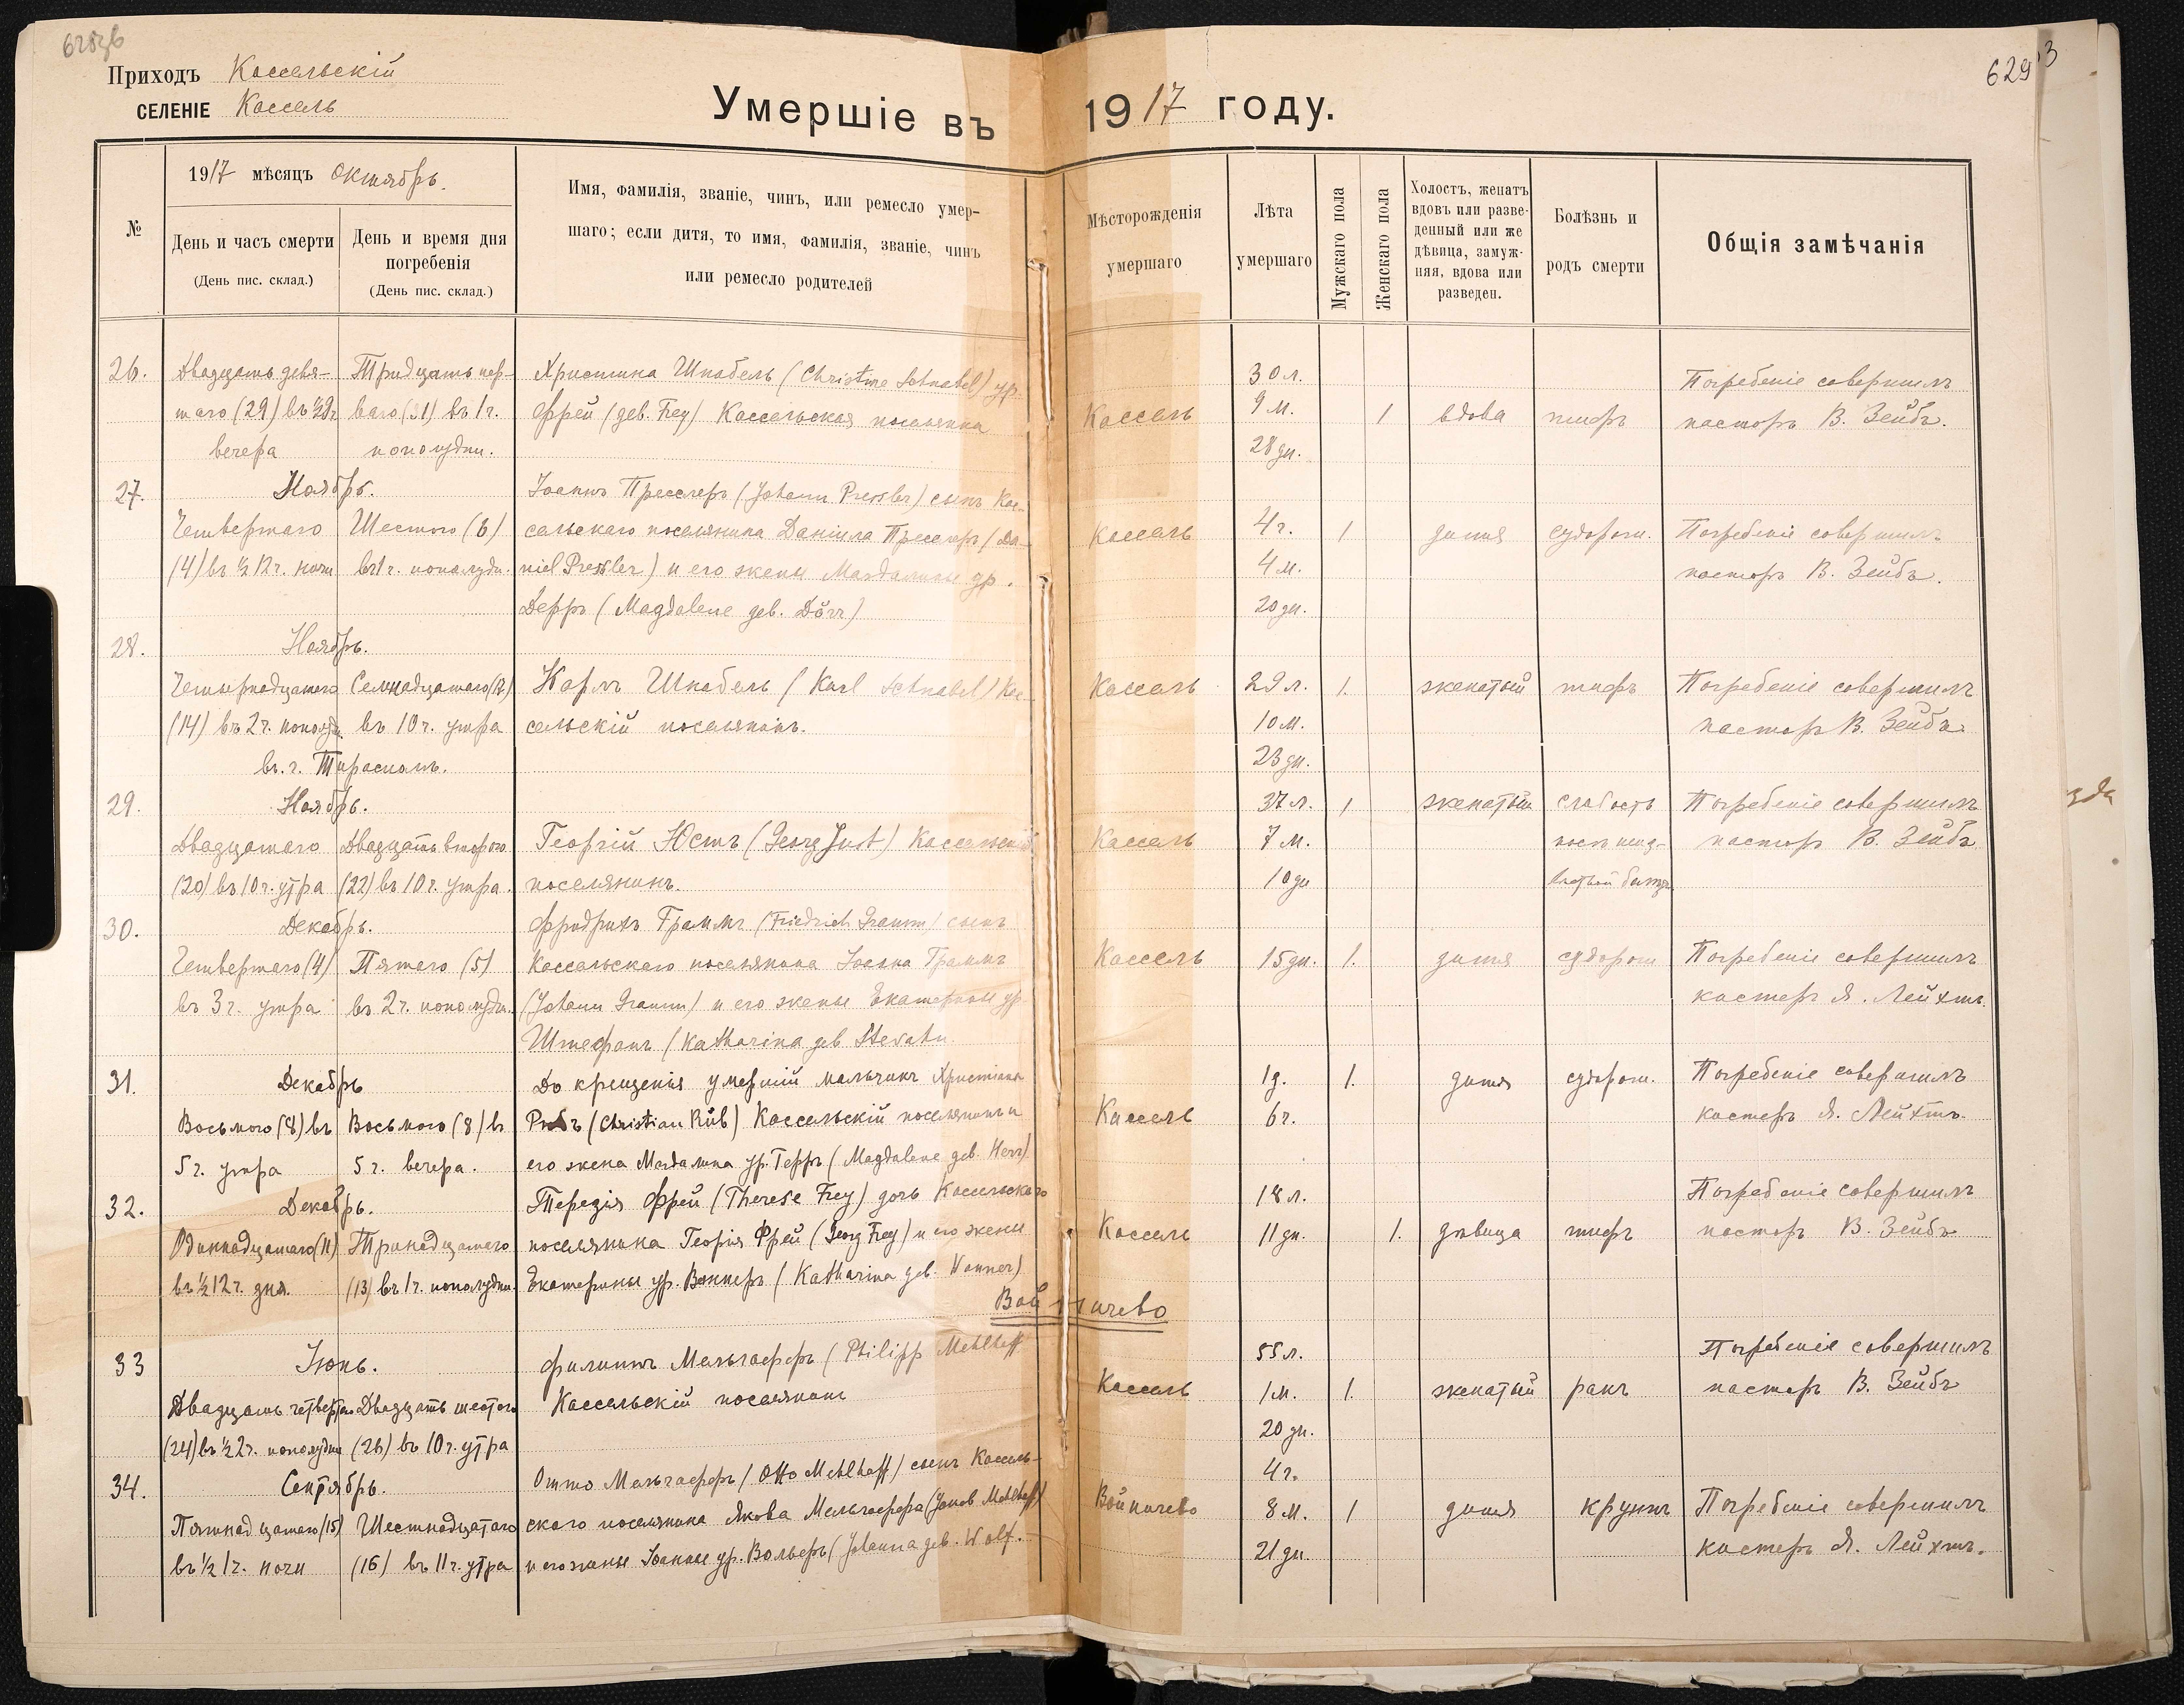 Приходъ Кассельскій
СЕЛЕНІЕ Кассель
Умершіе въ 1917 году.
629
№
1917 мѣсяцъ Октябрь.
День и часъ смерти
(День пис. склад.)
День и время дня
погребенія
(День пис. склад.)
Имя, фамилія, званіе, чинъ, или ремесло умер-
шаго; если дитя, то имя, фамилія, званіе, чинъ
или ремесло родителей
Мѣсторожденія
умершаго
Лѣта
умершаго
Мужскаго пола
Женскаго пола
Холостъ, женатъ
вдовъ или разве-
денный или же
дѣвица, замуж-
няя, вдова или
разведен.
Болѣзнь и
родъ смерти
Общія замѣчанія
26. Двадцать девя- Тридцать пер- Христина Шнабель (Christine Schnabel) ур. 30 л. Погребеніе совершилъ
таго (29) въ ваго (31) въ 1 ч. Фрей (geb. Frey) Кассельская поселянка Кассель 9 м. 1 вдова тифъ пасторъ В. Зейбъ.
вечера пополудни. 28 дн.
27. Ноябрь. Іоаннъ Пресслеръ (Johann Pressler) сынъ Кас-
Четвертаго Шестого (6) сельскаго поселянина Даніила Пресслеръ (Da- Кассель 4 г. 1 дитя судорог. Погребеніе совершилъ
(4) въ ½ 12 ч. ночи въ 1 ч. пополудн. niel Pressler) и его жены Магдалины ур. 4 м. пасторъ В. Зейбъ.
Дерръ (Magdalene geb. Dörr) 20 дн.
28. Ноябрь.
Четырнадцатаго Семнадцатаго Карлъ Шнабель (Karl Schnabel) Кас- Кассель 29 л. 1. женатый тифъ Погребеніе совершилъ
(14) въ 2 ч. пополуд. въ 10 ч. утра сельскій поселянинъ. 10 м. пасторъ В. Зейбъ
въ г. Тирасполь. 23 дн.
29. Ноябрь. 37 л. 1 женатый слабость Погребеніе совершилъ
Двадцатаго Двадцать второго Георгій Юстъ (Georg Just) Кассельскій Кассель 7 м. пасторъ В. Зейбъ
(20) въ 10 ч. утра (22) въ 10 ч. утра. поселянинъ. 10 дн
30. Декабрь. Фридрихъ Граммъ (Friedrich Gramm) сынъ
Четвертаго (4) Пятаго (5) Кассельскаго поселянина Іоанна Граммъ Кассель 15 дн. 1. дитя судорог Погребеніе совершилъ
въ 3 ч. утра въ 2 ч. пополудн. (Johann Gramm) и его жены Екатерины ур. кистеръ Я. Лейхтъ.
Штефанъ (Katharina geb
31. Декабрь До крещенія умершій мальчикъ Христіанъ 1 д. 1. дитя судорог. Погребеніе совершилъ
Восьмого (8) въ Восьмого (8) въ (Christian Rüb) Кассельскій поселянинъ и Кассель 6 ч. кистеръ Я. Лейхтъ.
5 ч. утра 5 ч. вечера. его жена Магдалина ур. Герръ (Magdalene geb. Herr)
32. Декабрь. Терезія Фрей (Therese Frey) дочь Кассельскаго 18 л. Погребеніе совершилъ
Одиннадцатаго (11) Тринадцатаго поселянина Георгія Фрей (Georg Frey) и его жены Кассель 11 дн. 1. дѣвица тифъ пасторъ В. Зейбъ
въ ½ 12 ч. дня. (13) въ 1 ч. пополудни. Екатерины ур. Ваннеръ (Katharina geb. Wanner)
Войничево
33 Іюнь. Филиппъ Мельгаффъ (Philipp Mehlhaff 55 л. Погребеніе совершилъ
Двадцать четвертаго Двадцать шестого Кассельскій поселянинъ Кассель 1 м. 1. женатый ракъ пасторъ В. Зейбъ
(24) въ ½ 2 ч. пополудни (26) въ 10 ч. утра 20 дн.
34. Сентябрь. Отто Мельгаффъ (Otto Mehlhaff) сынъ Кассель- 4 г.
Пятнадцатаго (15) Шестнадцатаго скаго поселянина Якова Мельгаффа (Jacob Mehlhaff) Войничево 8 м. 1 дитя крупъ Погребеніе совершилъ
въ ½ 1 ч. ночи (16) въ 11 ч. утра и его жены Іоанны ур. Вольфъ (Johanna geb. Wolf. 21 дн. кистеръ Я. Лейхтъ.